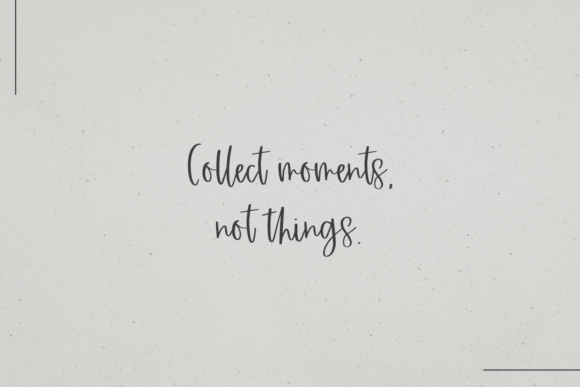 Collect moments,
not things.